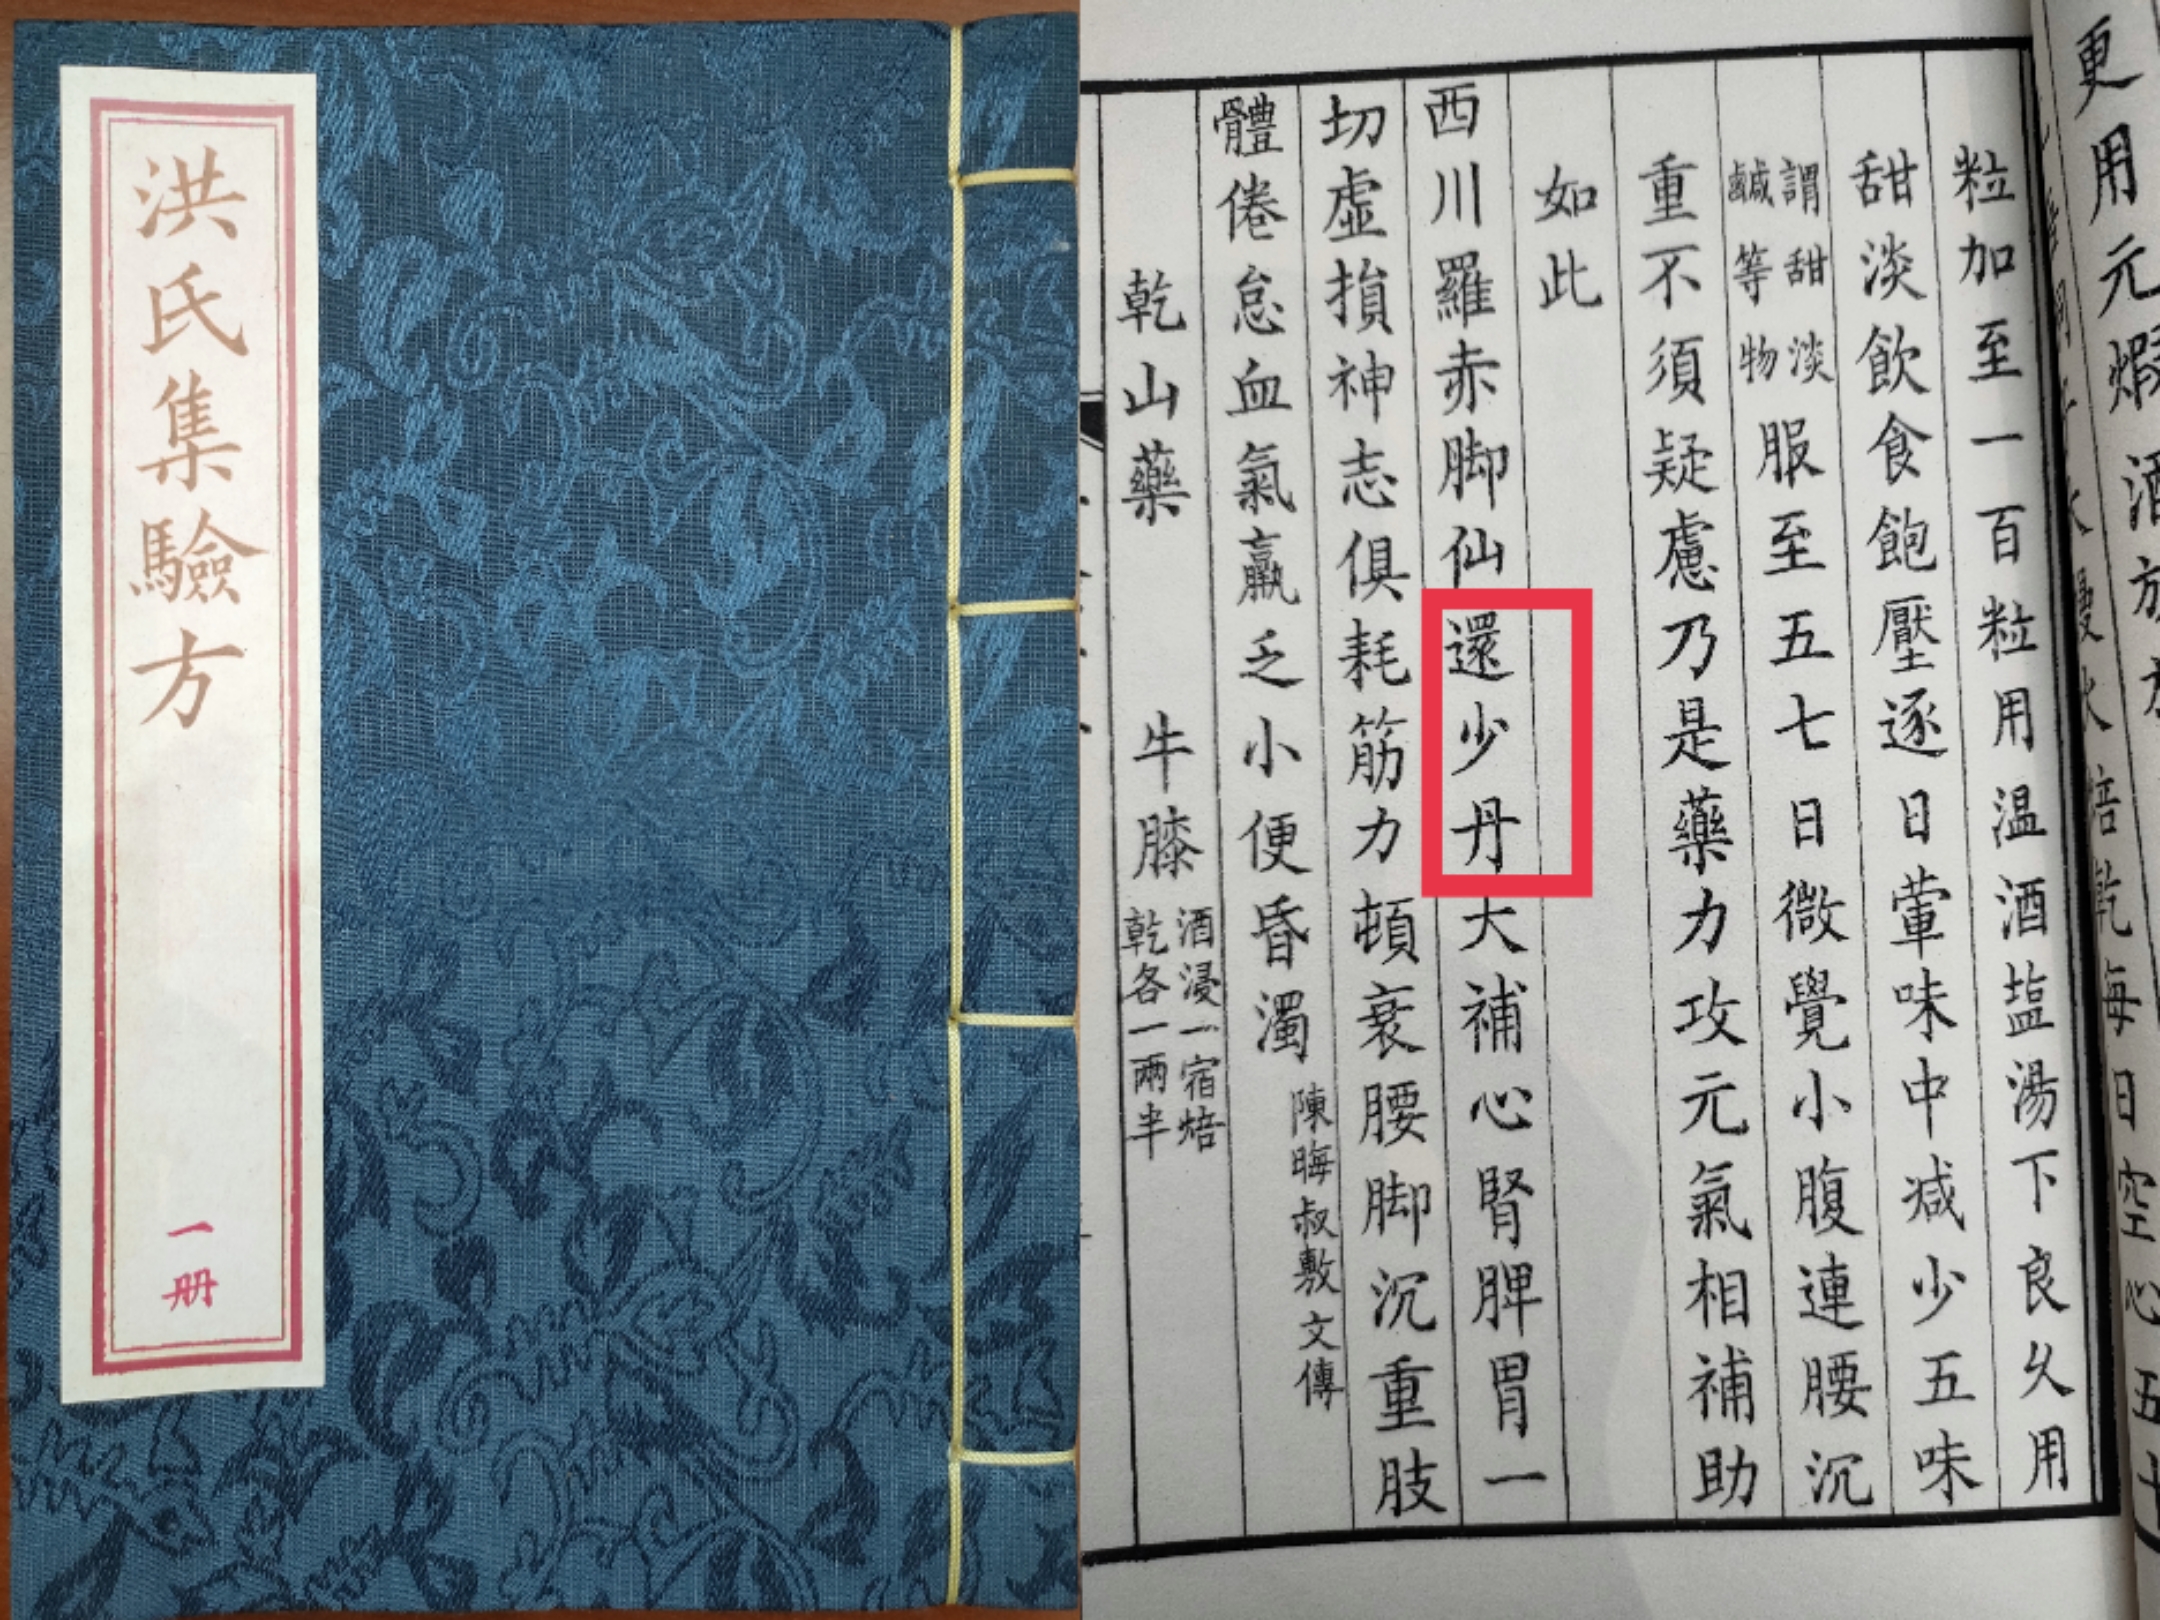 洪氏集驗方
一册
更用元煆酒
粒加至一百粒用温酒塩湯下良久用
甜淡飲食飽壓逐日葷味中减少五味
謂甜淡
鹹等物
服至五七日微覺小腹連腰沉
重不須疑慮乃是藥力攻元氣相補助
如此
西川羅赤脚仙還少丹大補心腎脾胃一
切虛損神志俱耗筋力頓衰腰脚沉重肢
體倦怠血氣羸乏小便昏濁
陳晦叔敷文傳
乾山藥 牛膝
酒浸一宿焙
乾各一兩半